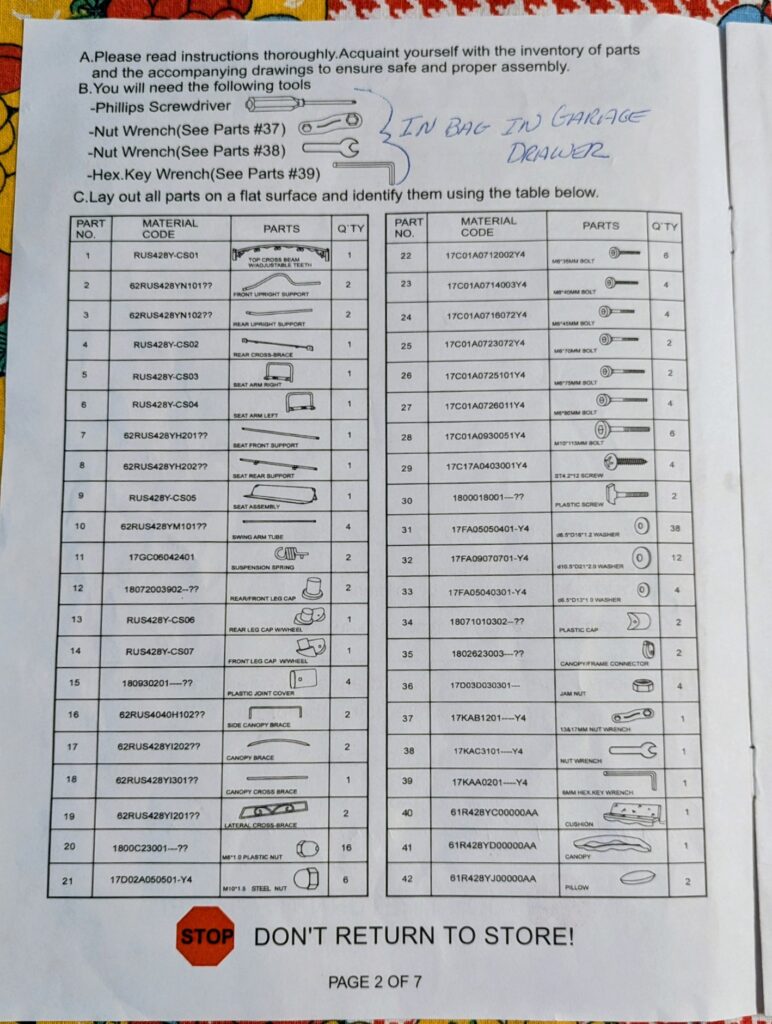 A.Please read instructions thoroughly.Acquaint yourself with the inventory of parts
and the accompanying drawings to ensure safe and proper assembly.
B.You will need the following tools
-Phillips Screwdriver
-Nut Wrench(See Parts #37)
-Nut Wrench(See Parts #38)
-Hex.Key Wrench(See Parts #39)
IN BAG IN GARAGE
DRAWER
C.Lay out all parts on a flat surface and identify them using the table below.
PART NO. MATERIAL CODE PARTS Q'TY
1 RUS428Y-CS01 TOP CROSS BEAM W/ADJUSTABLE TEETH 1
2 62RUS428YN101?? FRONT UPRIGHT SUPPORT 2
3 62RUS428YN102?? REAR UPRIGHT SUPPORT 2
4 RUS428Y-CS02 REAR CROSS-BRACE 1
5 RUS428Y-CS03 SEAT ARM RIGHT 1
6 RUS428Y-CS04 SEAT ARM LEFT 1
7 62RUS428YH201?? SEAT FRONT SUPPORT 1
8 62RUS428YH202?? SEAT REAR SUPPORT 1
9 RUS428Y-CS05 SEAT ASSEMBLY 1
10 62RUS428YM101?? SWING ARM TUBE 4
11 17GC06042401 SUSPENSION SPRING 2
12 18072003902--?? REAR/FRONT LEG CAP 2
13 RUS428Y-CS06 REAR LEG CAP W/WHEEL 1
14 RUS428Y-CS07 FRONT LEG CAP W/WHEEL 1
15 180930201----?? PLASTIC JOINT COVER 4
16 62RUS4040H102?? SIDE CANOPY BRACE 2
17 62RUS428YI202?? CANOPY BRACE 2
18 62RUS428YI301?? CANOPY CROSS BRACE 1
19 62RUS428YI201?? LATERAL CROSS-BRACE 2
20 1800C23001---?? M6*1.0 PLASTIC NUT 16
21 17D02A050501-Y4 M10*1.5 STEEL NUT 6
PART NO. MATERIAL CODE PARTS Q'TY
22 17C01A0712002Y4 M6*35MM BOLT 6
23 17C01A0714003Y4 M6*40MM BOLT 4
24 17C01A0716072Y4 M6*45MM BOLT 4
25 17C01A0723072Y4 M6*70MM BOLT 2
26 17C01A0725101Y4 M6*75MM BOLT 2
27 17C01A0726011Y4 M6*80MM BOLT 4
28 17C01A0930051Y4 M10*115MM BOLT 6
29 17C17A0403001Y4 ST4.2*12 SCREW 4
30 1800018001---?? PLASTIC SCREW 2
31 17FA05050401-Y4 d6.5*D16*1.2 WASHER 38
32 17FA09070701-Y4 d10.5*D21*2.0 WASHER 12
33 17FA05040301-Y4 d6.5*D13*1.0 WASHER 4
34 18071010302--?? PLASTIC CAP 2
35 1802623003---?? CANOPY/FRAME CONNECTOR 2
36 17D03D030301--- JAM NUT 4
37 17KAB1201----Y4 13&17MM NUT WRENCH 1
38 17KAC3101----Y4 NUT WRENCH 1
39 17KAA0201----Y4 6MM HEX.KEY WRENCH 1
40 61R428YC00000AA CUSHION 1
41 61R428YD00000AA CANOPY 1
42 61R428YJ00000AA PILLOW 2
STOP DON'T RETURN TO STORE!
PAGE 2 OF 7